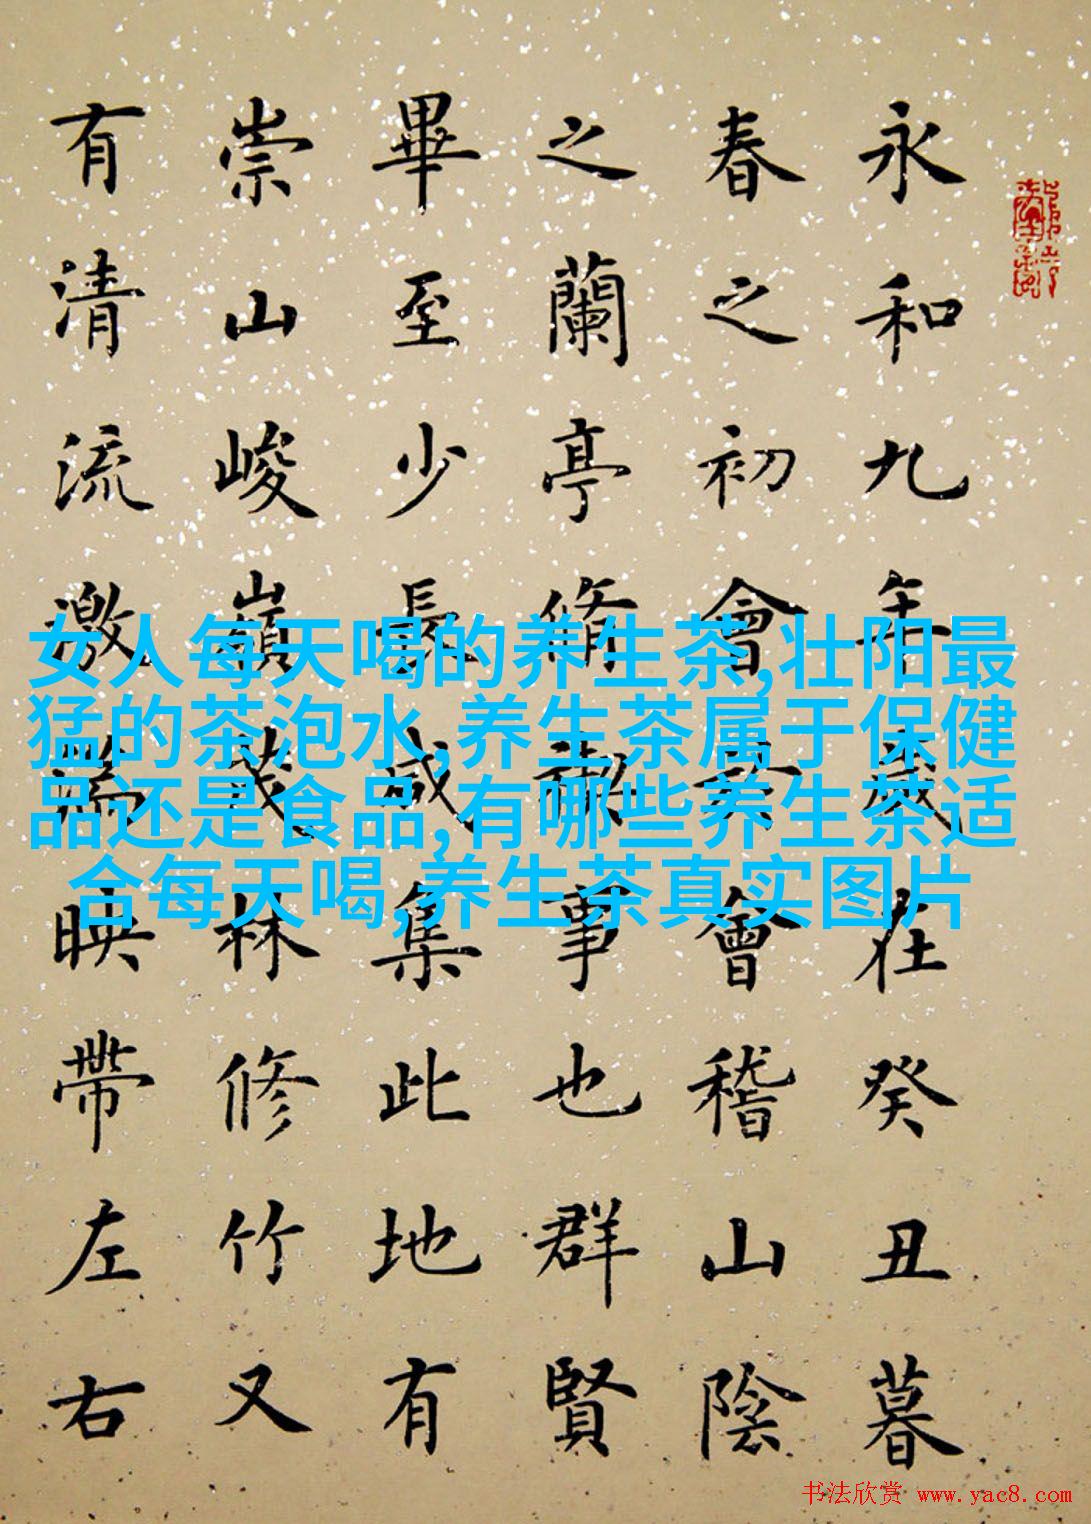 永和九年歲在癸丑暮
春之初會會稽山陰
之蘭亭脩禊事也群賢
畢至少長咸集此地有
崇山峻嶺茂林修竹又
有清流激湍映帶左右
女人每天喝的养生茶,壮阳最
猛的茶泡水,养生茶属于保健
品还是食品,有哪些养生茶适
合每天喝,养生茶真实图片
书法欣赏 www.yac8.com